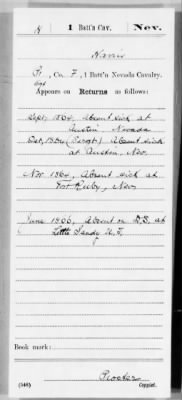 H 1 Batt'n Cav. Nev.
Harris
Co. F, 1 Batt'n Nevada Cavalry.
Appears on Returns as follows:
Sept. 1864, Absent sick at
Austin, Nevada
Oct. 1864 Absent sick
at Austin, Nev.
Nov. 1864, Absent sick at
Fort Ruby, Nev.
June 1866, Absent on D.S. at
Little Sandy U.T.
Book mark:
(546)
Copyist.